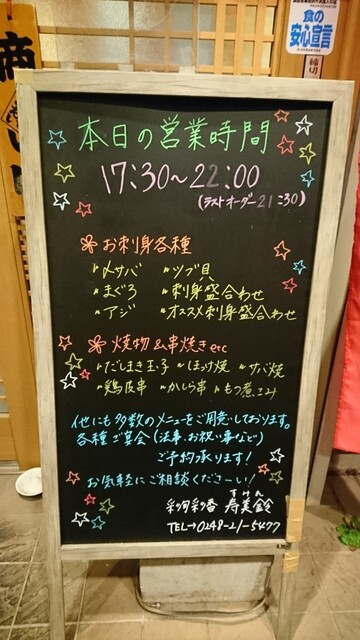 食の
安心宣言
締切
商
本日の営業時間
17:30~22:00
(ラストオーダー21:30)
お刺身各種
〃〆サバ 〃ツブ貝
〃まぐろ 〃刺身盛合わせ
〃アジ 〃オススメ刺身盛合わせ
焼物&串焼きetc
〃だしまき玉子 〃ほっけ焼 〃サバ焼
〃鶏皮串 〃かしら串 〃もつ煮こみ
他にも多数のメニューをご用意しております。
各種ご宴会(法事、お祝い事など)
ご予約承ります!
お気軽にご相談くださーい!
すけん
彩町彩香 寿美鈴
TEL→0248-21-5477